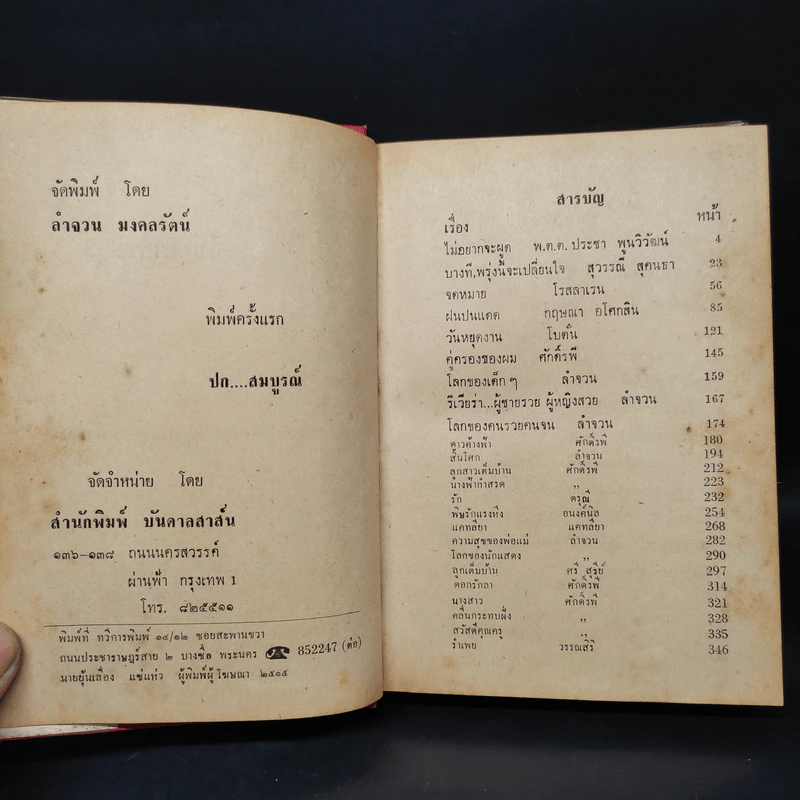 จัดพิมพ์ โดย
ลำจวน มงคลรัตน์
พิมพ์ครั้งแรก
ปก....สมบูรณ์
จัดจำหน่าย โดย
สำนักพิมพ์ บันดาลสาส์น
๑๓๖–๑๓๘ ถนนนครสวรรค์
ผ่านฟ้า กรุงเทพ 1
โทร. ๘๒๕๕๑๑
พิมพ์ที่ ทวีการพิมพ์ ๑๔/๑๒ ซอยสะพานขวา
ถนนประชาราษฎร์สาย ๒ บางซื่อ พระนคร ☎ 852247 (ต่อ)
นายยุ่นเลื่อง แซ่แห่ว ผู้พิมพ์ผู้โฆษณา ๒๕๑๕
สารบัญ
เรื่อง หน้า
ไม่อยากจะผูด พ.ต.ต. ประชา พูนวิวัฒน์ 4
บางที,พรุ่งนี้จะเปลี่ยนใจ สุวรรณี สุคนธา 23
จดหมาย โรสลาเรน 56
ฝนปนแดด กฤษณา อโศกสิน 85
วันหยุดงาน โบตั๋น 121
คู่ครองของผม ศักดิ์รพี 145
โลกของเด็ก ๆ ลำจวน 159
รีเวียร่า...ผู้ชายรวย ผู้หญิงสวย ลำจวน 167
โลกของคนรวยคนจน ลำจวน 174
ดาวค้างฟ้า ศักดิ์รพี 180
สนโศก ลำจวน 194
ลูกสาวเต็มบ้าน ศักดิ์รพี 212
นางฟ้ากำสรด ,, 223
รัก ดรุณี 232
พิษรักแรงหึง อนงค์นิล 254
แคทลียา แคทลียา 268
ความสุขของพ่อแม่ ลำจวน 282
โลกของนักแสดง ,, 290
ลูกเต็มบ้าน ศรี สุรีย์ 297
ดอกรักลา ศักดิ์รพี 314
นางสาว ศักดิ์รพี 321
คลื่นกระทบฝั่ง ,, 328
สวัสดีคุณครู ,, 335
รำเพย วรรณสิริ 346